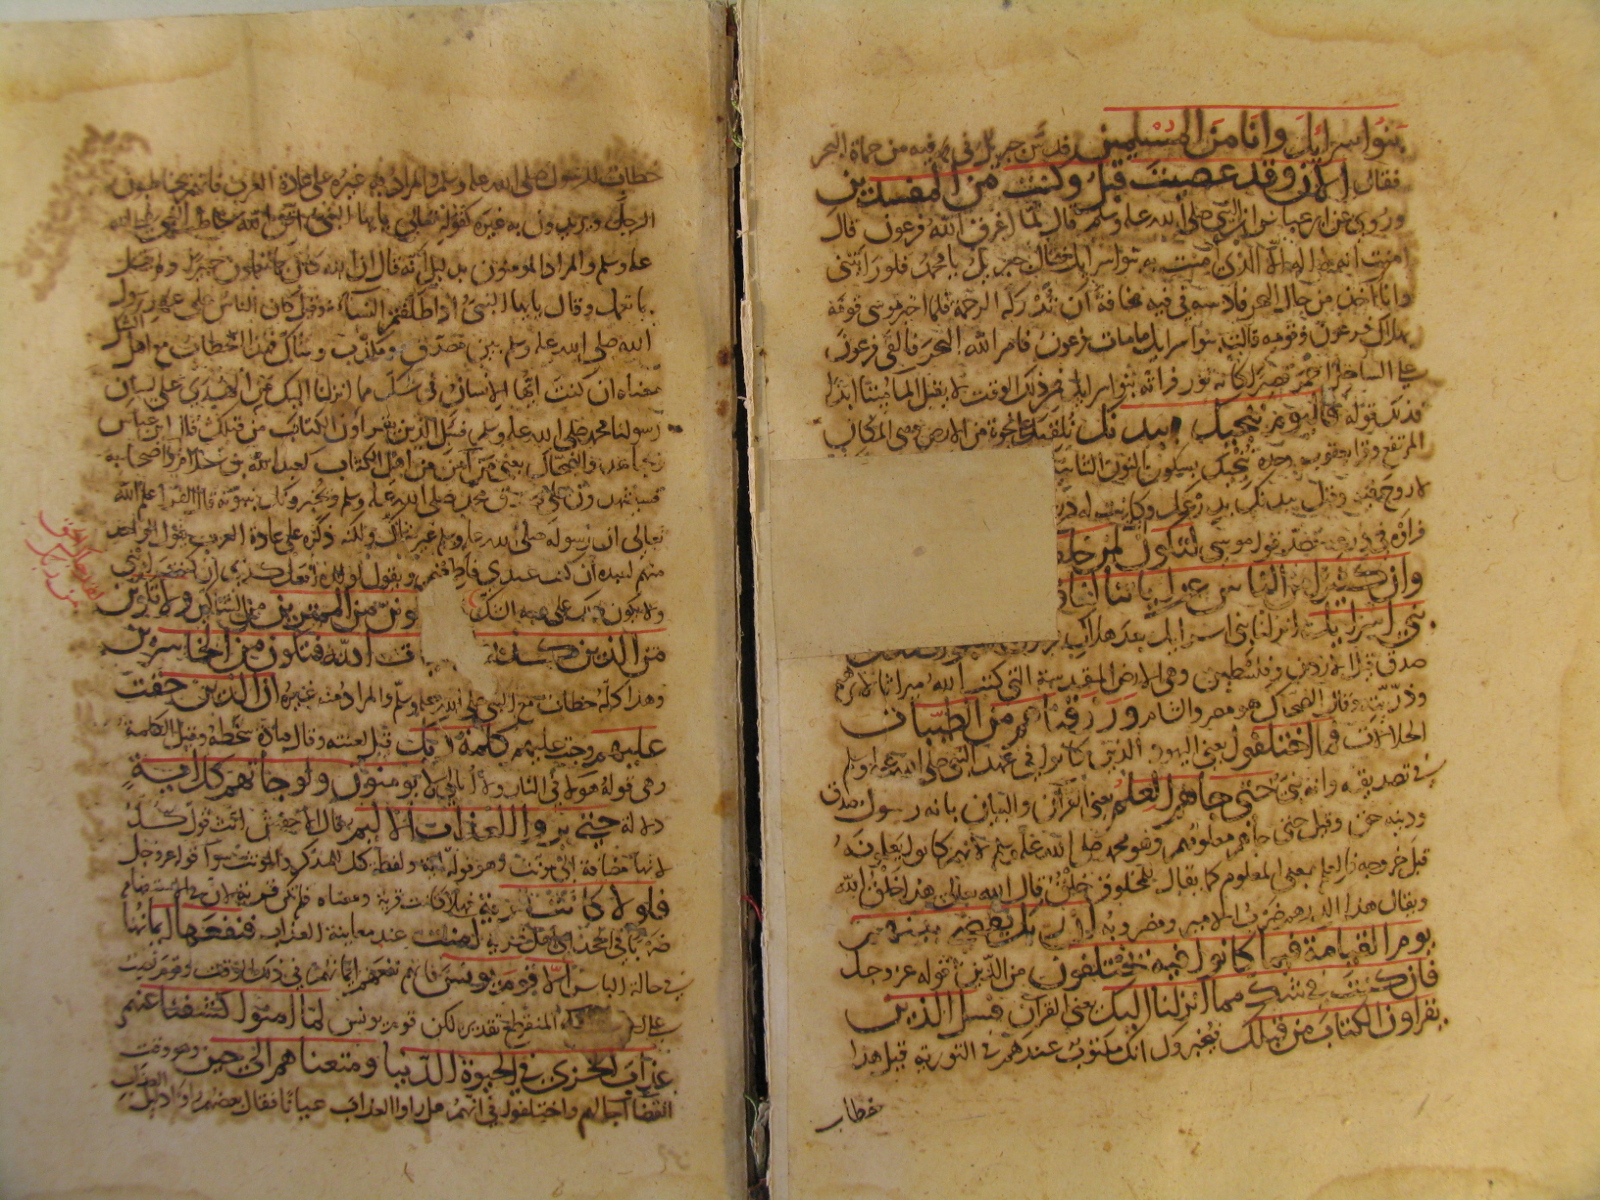 بنوا اسرائيل وانا من المسلمين فدس جبريل في فيه من حماة البحر
فقال الان وقد عصيت قبل وكنت من المفسدين
وروي عن ابن عباس ان النبي صلى الله عليه وسلم قال لما اغرق الله فرعون قال
امنت انه لا اله الا الذي امنت به بنوا اسرايل فقال جبريل يا محمد فلو رايتني
وانا اخذ من حال البحر فادسه في فيه مخافة ان تدركه الرحمة فلما اخبر موسى قومه
بهلاك فرعون وقومه قالت بنوا اسرايل ما مات فرعون فامر الله البحر فالقى فرعون
على الساحل احمر قصيرا كانه ثور فراه بنوا اسرايل فمن ذلك الوقت لا يقبل الما ميتا ابدا
فذلك قوله فاليوم ننجيك ببدنك نلقيك على نجوة من الارض وهي المكان
المرتفع وقرا يعقوب وحده ننجيك بسكون النون الثانية
لا روح فيه وقيل ببدنك بدرعك وكانت له در
فراوه في درعه فصدقوا موسى لتكون لمن خلفك
وان كثيرا من الناس عن اياتنا
بني اسرايل انزلنا بني اسرايل بعد هلاك
صدق الاردن وفلسطين وهي الارض المقدسة التي كتب الله ميراثا لابراهيم
وذريته وقال الضحاك هو مصر والشام ورزقناهم من الطيبات
الحلالات فما اختلفوا يعني اليهود الذين كانوا في عهد النبي صلى الله عليه وسلم
في تصديقه وانه نبي حتى جاهم العلم يعني القران والبيان بانه رسول صدق
ودينه حق وقيل حتى جاهم معلومهم وهو محمد صلى الله عليه وسلم لانهم كانوا يعلمونه
قبل خروجه فالعلم بمعنى المعلوم كما يقال للمخلوق خلق قال الله تعالى هذا خلق الله
ويقال هذا الدرهم ضرب الامير ومضروبه ان ربك يقضي بينهم
يوم القيامة فيما كانوا فيه يختلفون من الدين قوله عز وجل
فان كنت في شك مما انزلنا اليك يعني القران فسل الذين
يقراون الكتاب من قبلك يخبرونك انك مكتوب عندهم في التورية قيل هذا
خطاب
خطاب للرسول صلى الله عليه وسلم والمراد به غيره على عادة العرب فانهم يخاطبون
الرجل ويريدون به غيره كقوله تعالى يا ايها النبي اتق الله خاطب النبي صلى الله
عليه وسلم والمراد المومنون بدليل انه قال ان الله كان بما تعملون خبيرا ولم يقل
بما تعمل وقال يا ايها النبي اذا طلقتم النساء وقيل كان الناس على عهد رسول
الله صلى الله عليه وسلم بين مصدق ومكذب وشاك فهذا الخطاب مع اهل الشك
معناه ان كنت ايها الانسان في شك مما انزلنا اليك من الهدى على لسان
رسولنا محمد صلى الله عليه وسلم فسل الذين يقراون الكتاب من قبلك قال ابن عباس
ومجاهد والضحاك يعني من امن من اهل الكتاب كعبد الله بن سلام واصحابه
فسيشهدون على صدق محمد صلى الله عليه وسلم ويخبرونك بنبوته قال الفرا علم الله
تعالى ان رسوله صلى الله عليه وسلم غير شاك ولكنه ذكره على عادة العرب يقول الواحد
منهم لعبده ان كنت عبدي فاطعني ويقول لولده افعل كذا ان كنت ابني
ولا يكون على وجه الشك
من الممترين من الشاكين ولا تكونن
من الذين كذبوا بايات الله فتكون من الخاسرين
وهذا كله خطاب مع النبي صلى الله عليه وسلم والمراد منه غيره ان الذين حقت
عليهم وجبت عليهم كلمة ربك قيل لعنته وقال قتادة سخطه وقيل الكلمة
وهي قوله هولاء في النار ولا ابالي لا يومنون ولو جاتهم كل اية
دلالة حتى يروا العذاب الاليم قال الاخفش انث قول كل
لانها مضافة الى مونث وهو قوله اية ولفظة كل المذكر والمونث سوا قوله عز وجل
فلولا كانت قرية فهلا كانت قرية ومعناه فلم تكن قرية لان في الاستفهام
ضربا من الجحد اي اهل قرية امنت عند معاينة العذاب فنفعها ايمانها
في حالة الباس الا قوم يونس فانهم نفعهم ايمانهم في ذلك الوقت وقوم نصب
على المنقطع تقديره لكن قوم يونس لما امنوا كشفنا عنهم
عذاب الخزي في الحيوة الدنيا ومتعناهم الى حين وهو وقت
انقضا اجالهم واختلفوا في انهم هل راوا العذاب عيانا فقال بعضهم راوا دليل العذاب